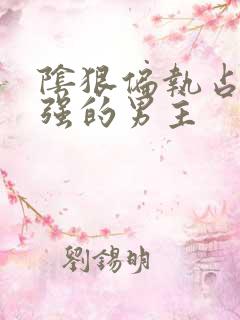 陰狠偏執占
强的男主
劉錫明